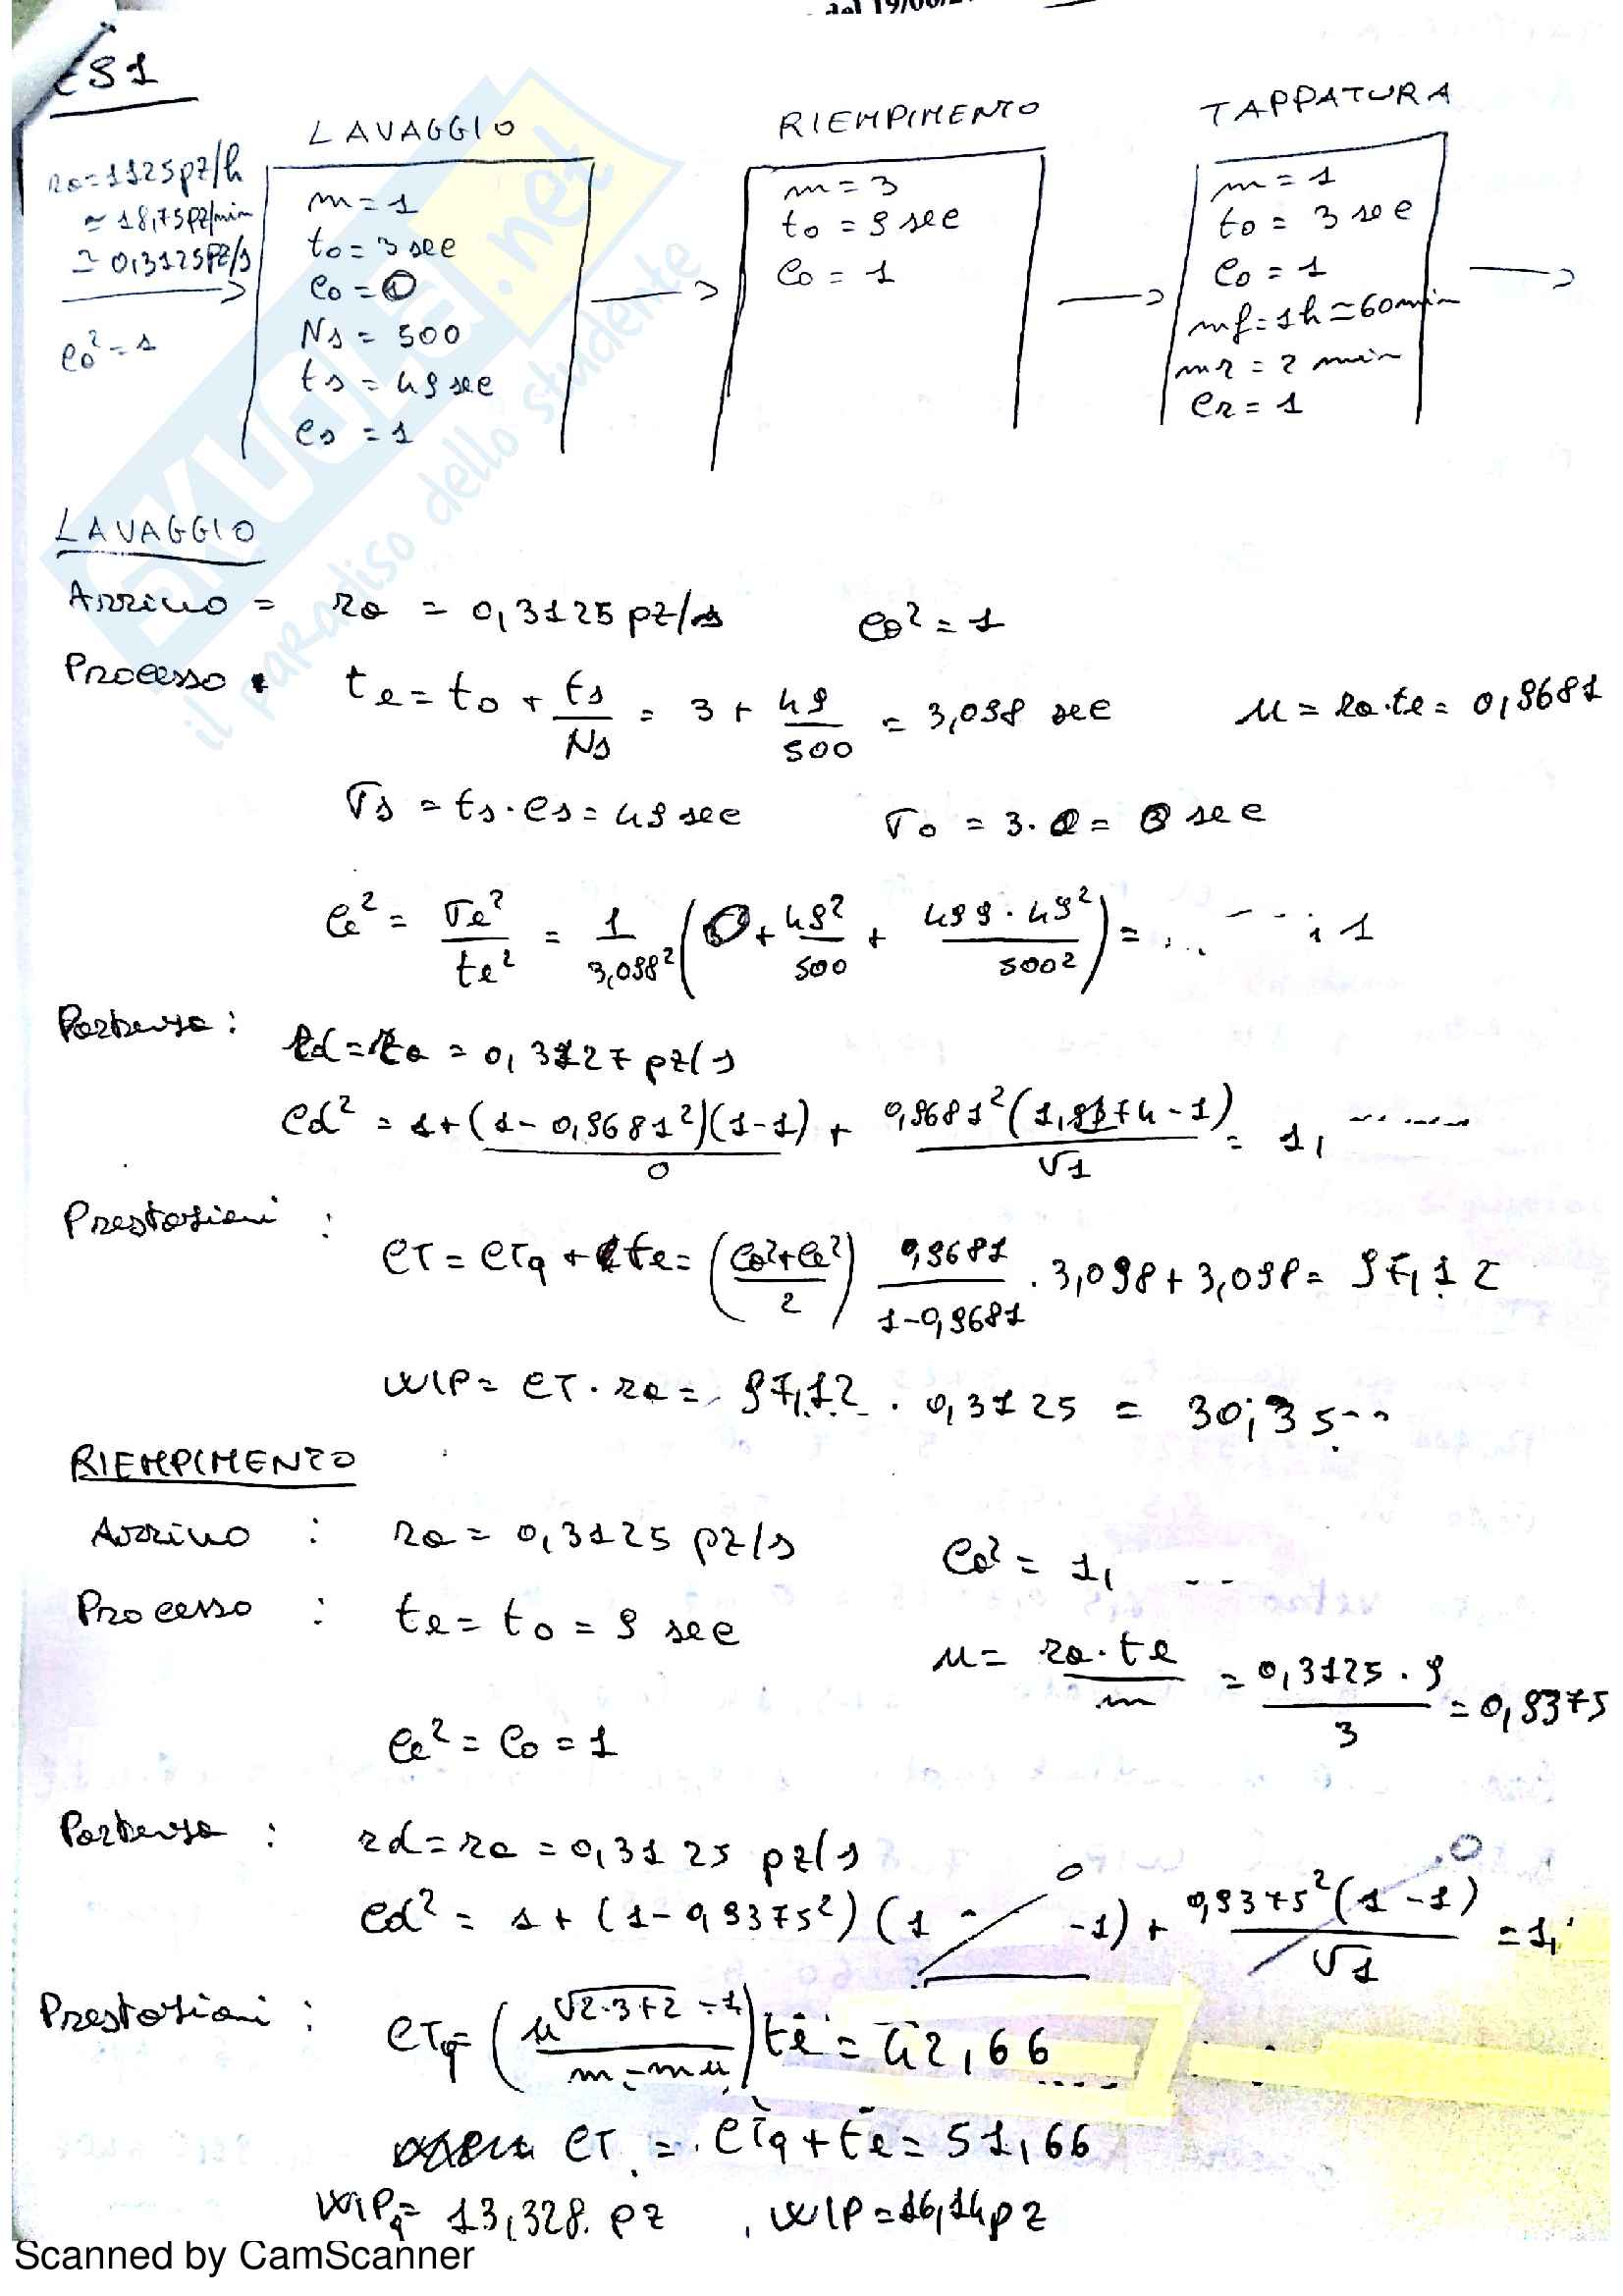 del 19/06/2
ES1
LAVAGGIO
RIEMPIMENTO
TAPPATURA
ra=1125pz/h
≃18,75pz/min
≃0,3125pz/s
Ca²=1
m=1
to=3 sec
Co=0
Ns=500
ts=49 sec
Cs=1
m=3
to=9 sec
Co=1
m=1
to=3 sec
Co=1
mf=1h≃60min
mr=2 min
Cr=1
SKUOLA.net
il paradiso dello studente
LAVAGGIO
Arrivo = ra = 0,3125 pz/s Ca²=1
Processo: te=to+ts/Ns = 3+49/500 = 3,098 sec u=ra·te=0,9681
σs=ts·Cs=49 sec σo=3·0=0 sec
Ce²=σe²/te²=1/3,098²(0+49²/500+499·49²/500²)=
Partenza:
rd=ra=0,3127 pz/s
Cd²=1+(1-0,9681²)(1-1)+0,9681²( -1)/√1=1,
0
Prestazioni:
CT=CTq+te=(Ca²+Ce²/2)0,9681/1-0,9681·3,098+3,098=97,12
WIP=CT·ra=97,12·0,3125=30,35
RIEMPIMENTO
Arrivo: ra=0,3125 pz/s Ca²=1,
Processo: te=to=9 sec
u=ra·te/m=0,3125·9/3=0,9375
Ce²=Co=1
Partenza: rd=ra=0,3125 pz/s
Cd²=1+(1-0,9375²)(1 -1)+0,9375²(1-1)/√1=1,
0 0
Prestazioni: CTq=(u^√2·3+2 -1/m-mu)te=42,66
CT=CTq+te=51,66
WIPq=13,328 pz, WIP=16,14pz
Scanned by CamScanner